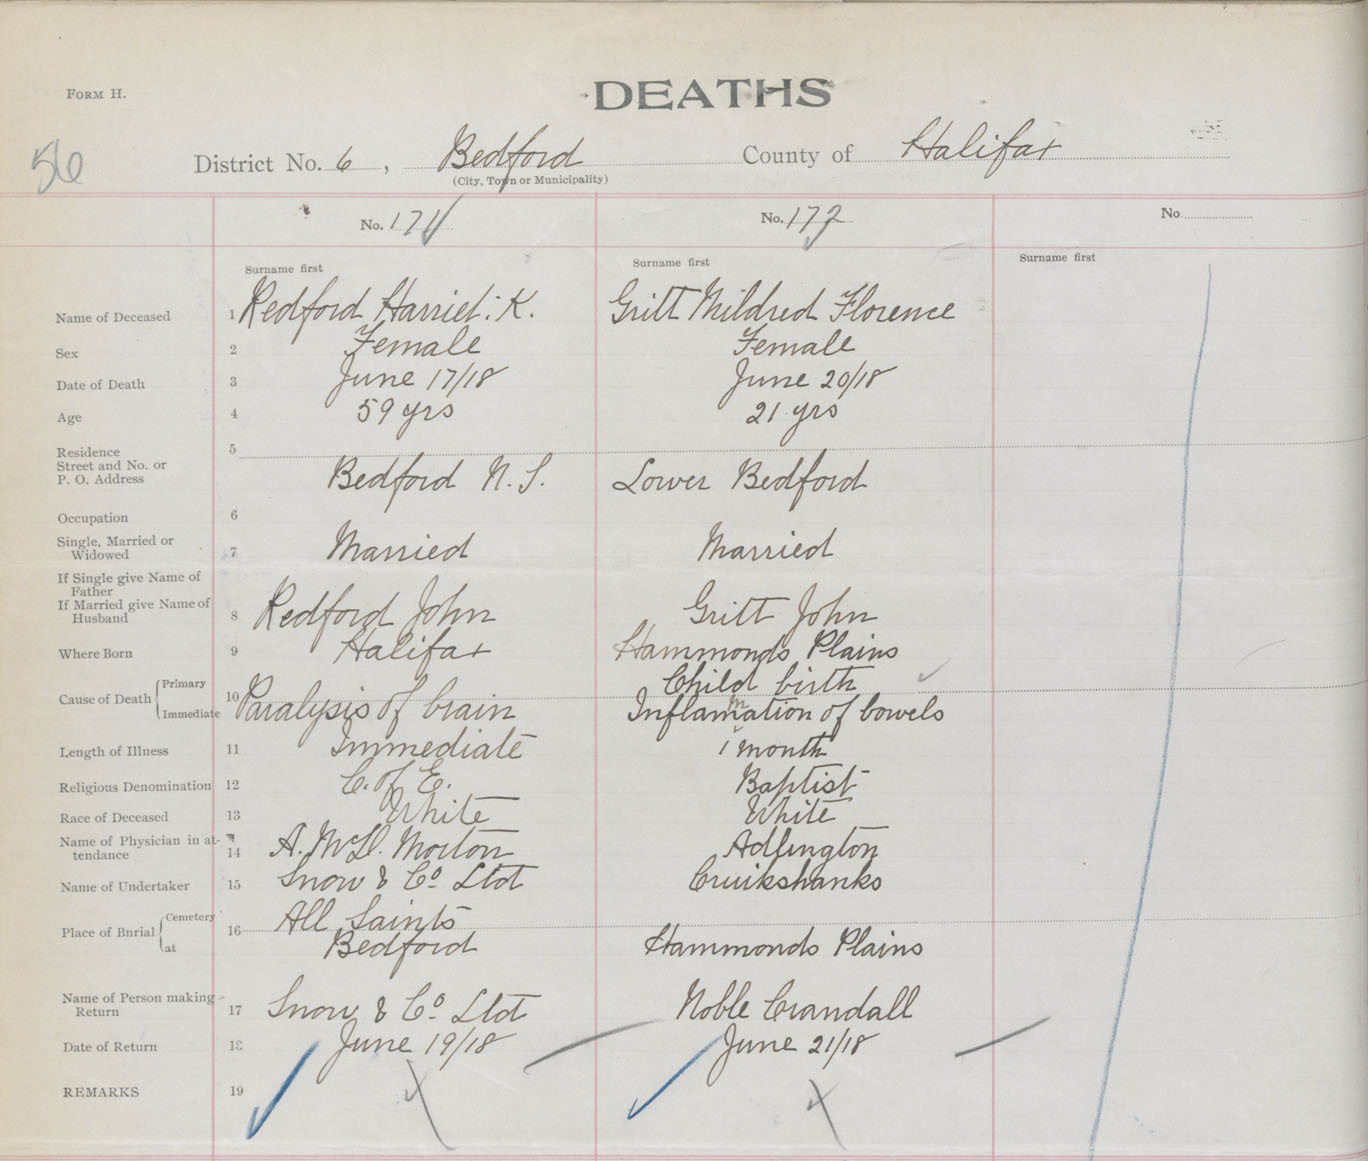 FORM H.
DEATHS
56
District No. 6, Bedford County of Halifax
(City, Town or Municipality)
No. 171 No. 172 No.
Surname first Surname first Surname first
Name of Deceased 1 Redford Harriet. K. Gritt Mildred Florence
Sex 2 Female Female
Date of Death 3 June 17/18 June 20/18
Age 4 59 yrs 21 yrs
Residence 5
Street and No. or
P. O. Address Bedford N. S. Lower Bedford
Occupation 6
Single, Married or
Widowed 7 Married Married
If Single give Name of
Father
If Married give Name of
Husband 8 Redford John Gritt John
Where Born 9 Halifax Hammonds Plains
Cause of Death Primary 10 Child birth
Immediate Paralysis of brain Inflammation of bowels
Length of Illness 11 Immediate 1 month
Religious Denomination 12 C. of E. Baptist
Race of Deceased 13 White White
Name of Physician in at-
tendance 14 A. McD. Morton Adlington
Name of Undertaker 15 Snow & Co. Ltd Cruikshanks
Place of Burial Cemetery 16 All Saints
at Bedford Hammonds Plains
Name of Person making
Return 17 Snow & Co. Ltd Noble Crandall
Date of Return 18 June 19/18 June 21/18
REMARKS 19